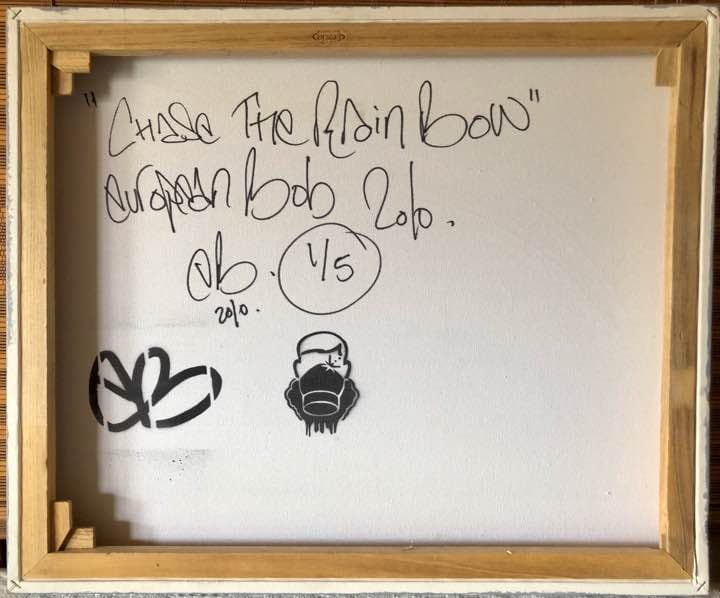 "Chase The RainBow"
european Bob 2010.
eb. 1/5
2010.
eB